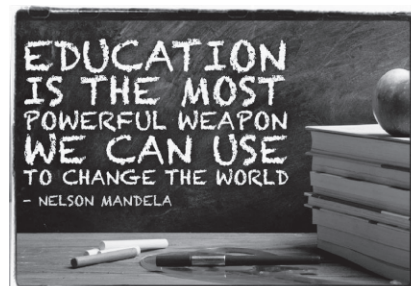 EDUCATION
IS THE MOST
POWERFUL WEAPON
WE CAN USE
TO CHANGE THE WORLD
- NELSON MANDELA